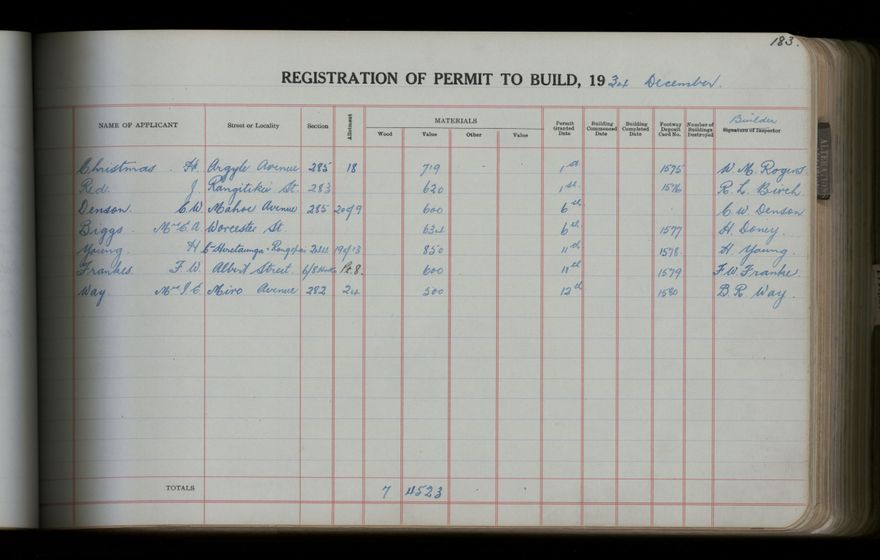 183.
REGISTRATION OF PERMIT TO BUILD, 1934 December.
NAME OF APPLICANT Street or Locality Section Allotment MATERIALS Wood Value Other Value Permit Granted Date Building Commenced Date Building Completed Date Footway Deposit Card No. Number of Buildings Destroyed Builder Signature of Inspector
Christmas . H. Argyle Avenue 285 18 719 - - 1st 1575 W. M. Rogers.
J Rangitikei St. 283 620 1st 1576 R. L. Birch
Denson. C W. Mahoe Avenue 285 20 of 9 600 6th - C W. Denson
Biggs. Mrs C A Worcester St. 634 6th 1577 H. Doney.
Young. H Heretaunga 19 of 13 850 11th 1578 H. Young.
Frankes F. W. Albert Street. Pt. 8. 600 11th 1579 F. W. Franke
Way. Mrs J. C Miro Avenue 282 24 500 12th 1580 B. R. Way.
TOTALS 7 4523 - -
ALTERATIONS